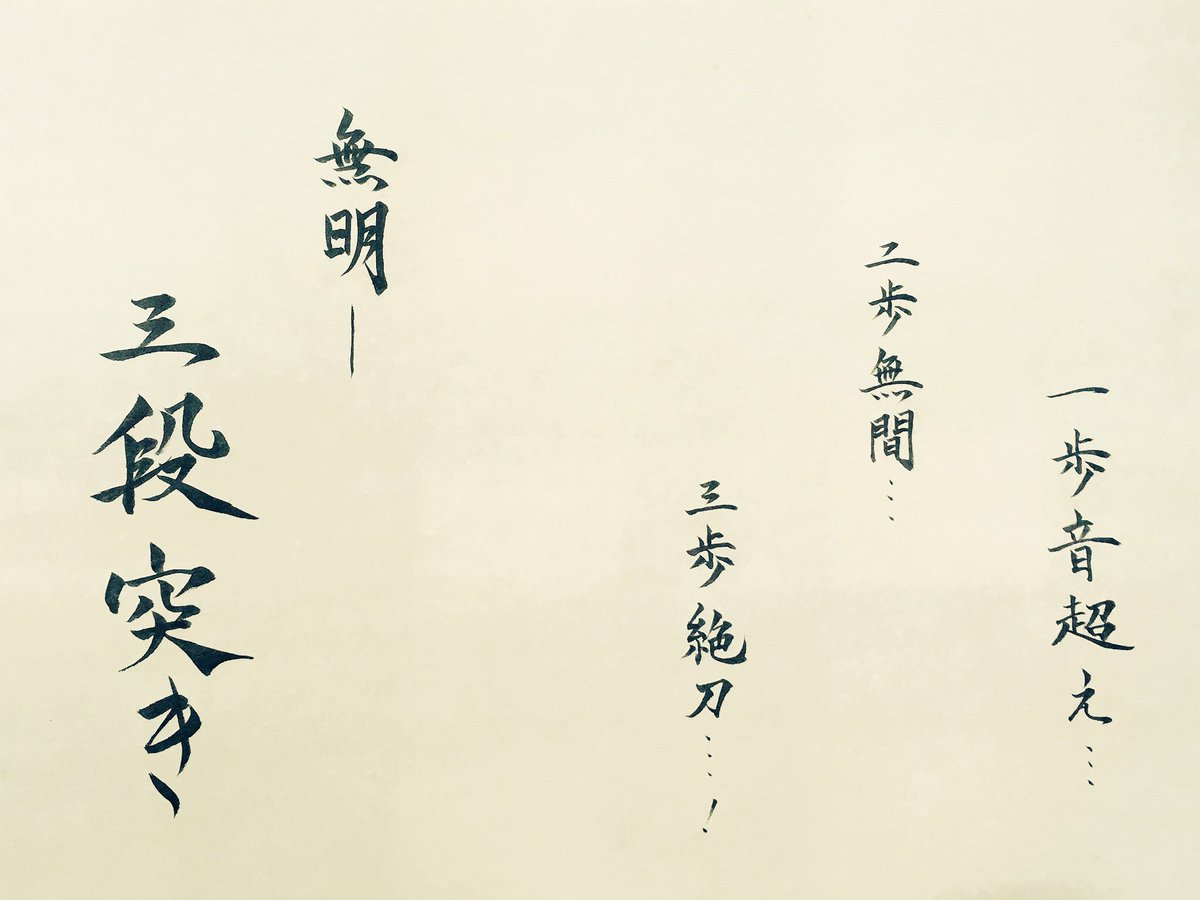 一歩音超え…
二歩無間…
三歩絶刀…!
無明―
三段突き